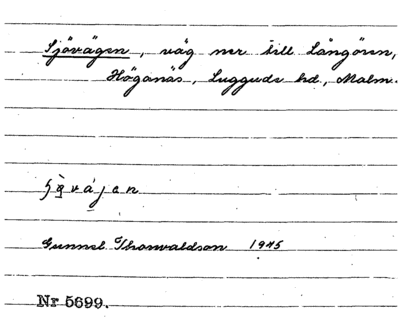 Sjövägen, väg ner till Långören,
Höganäs, Luggude hd, Malm.
Gunnel Thorvaldson 1945
Nr 5699.